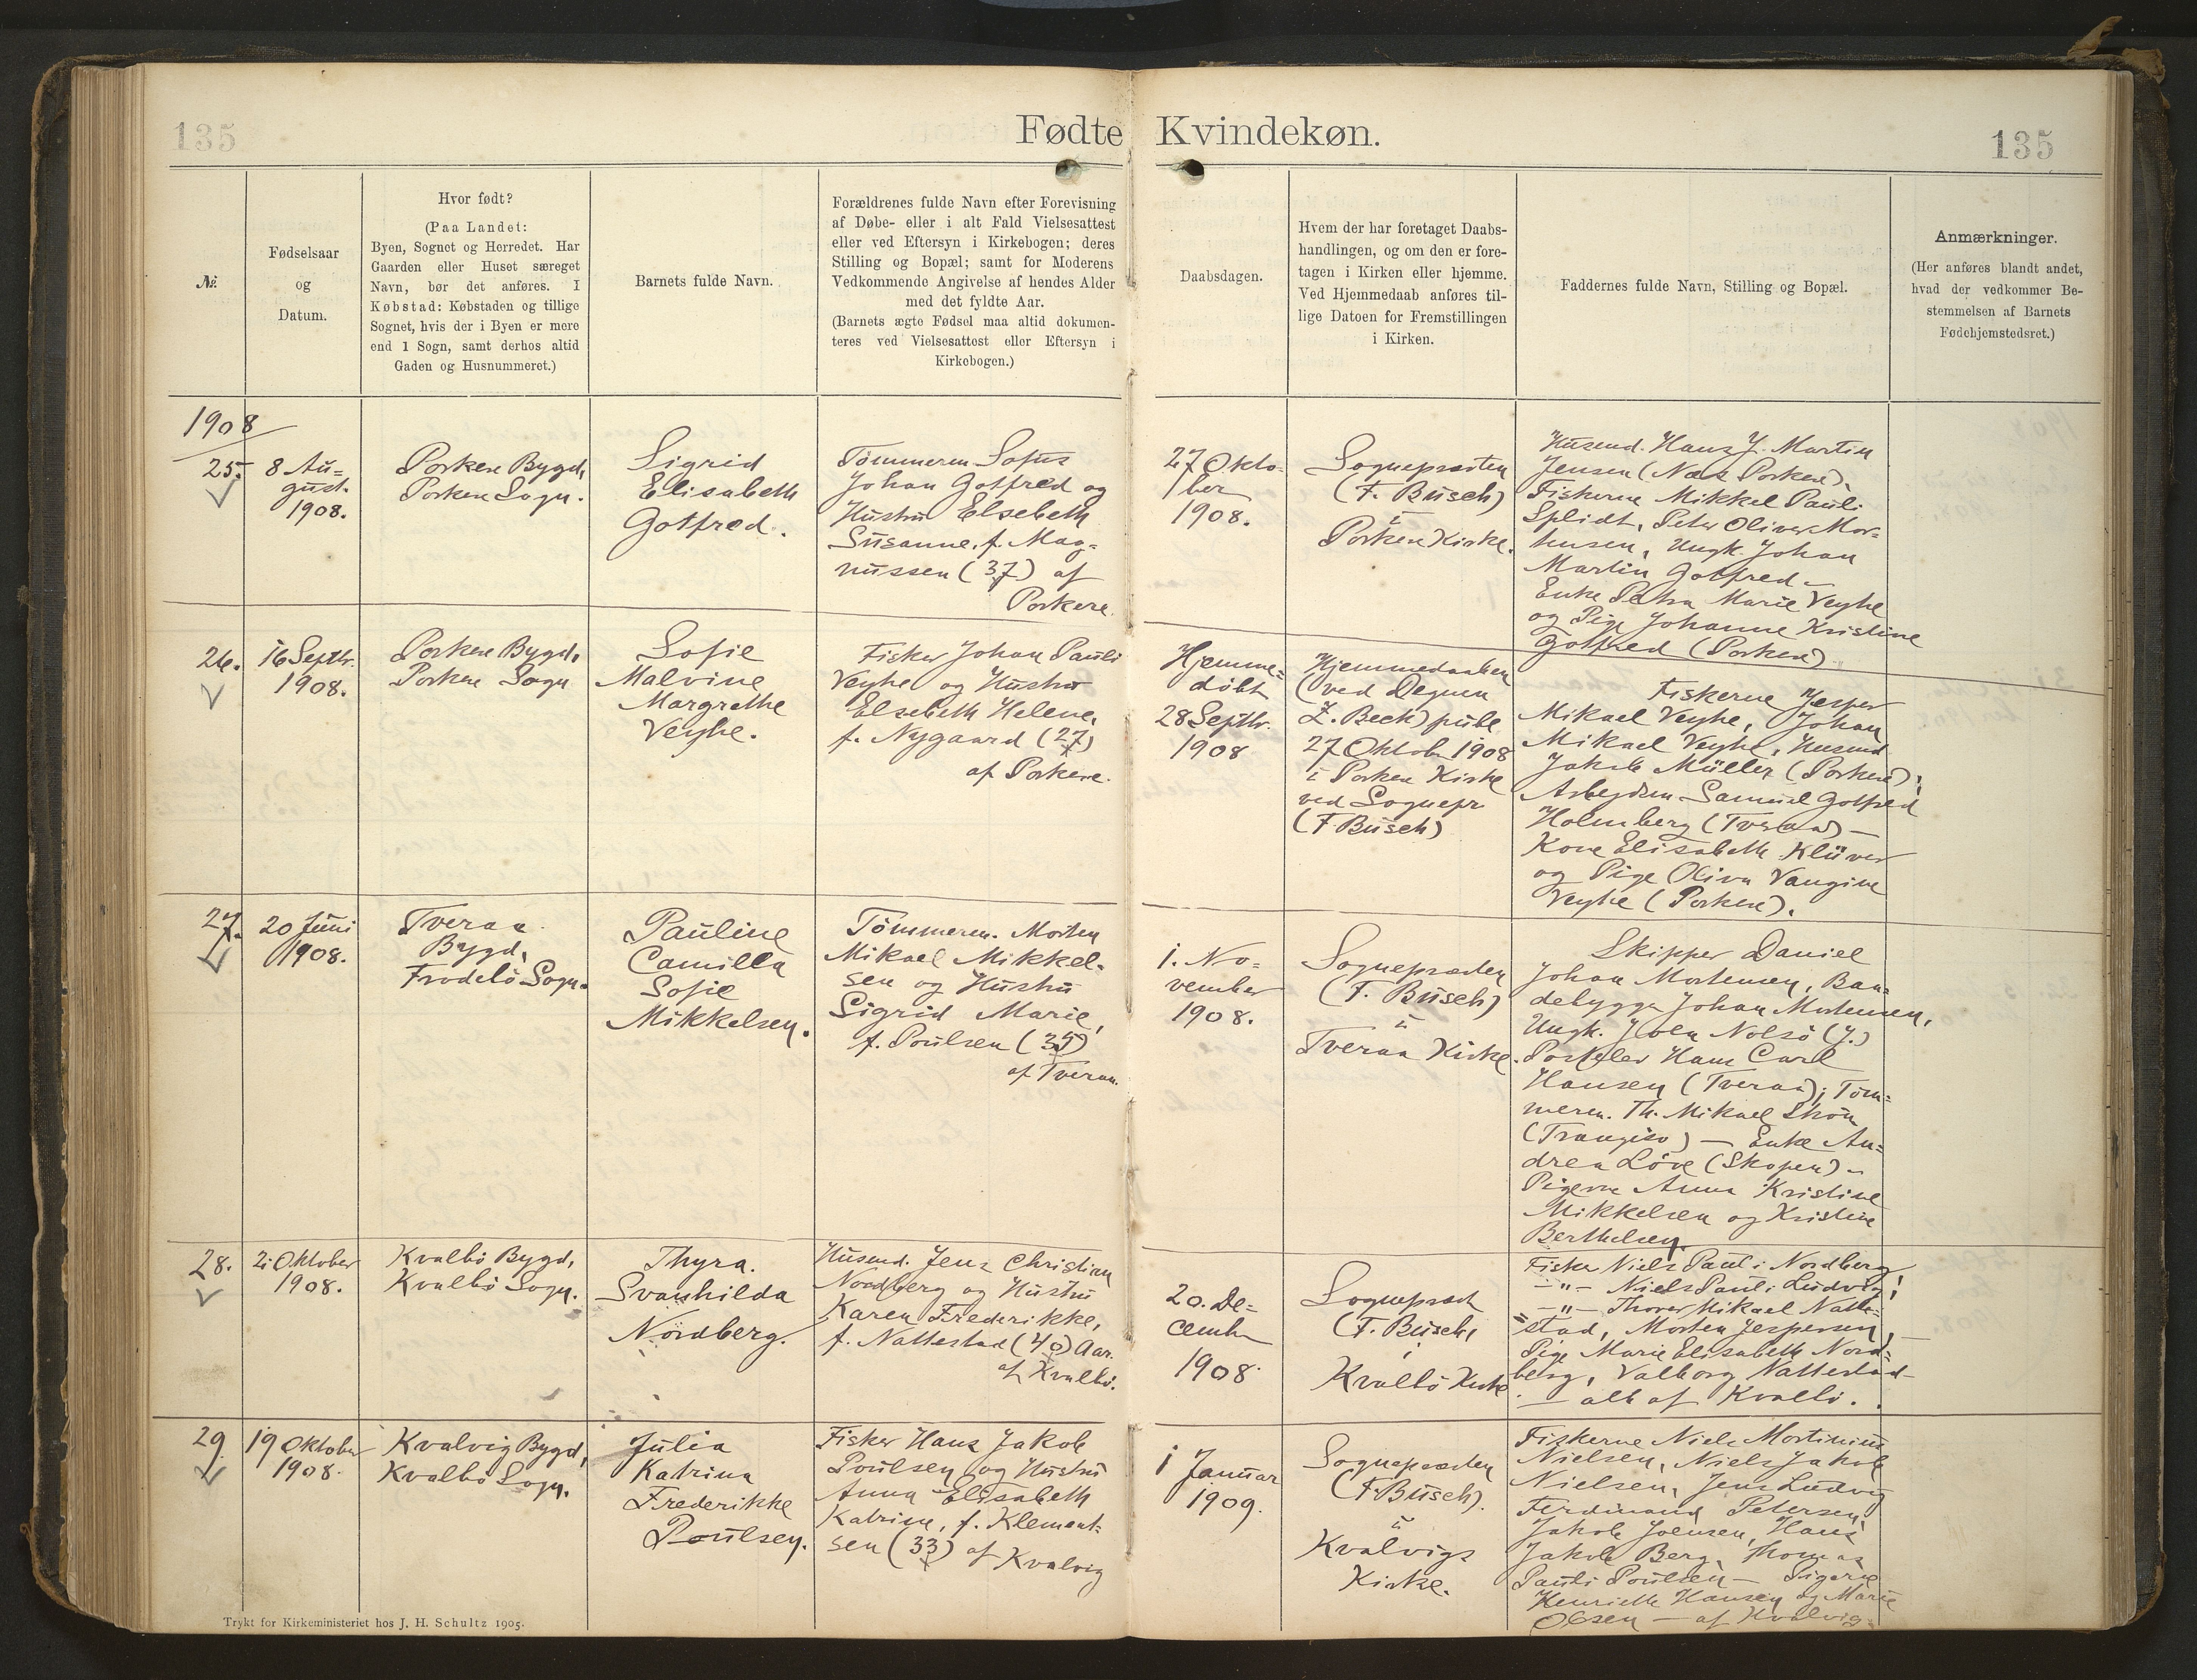 135
Fødte Kvindekøn.
135
№.
Fødselsaar
og
Datum.
Hvor født?
(Paa Landet:
Byen, Sognet og Herredet. Har
Gaarden eller Huset særeget
Navn, bør det anføres. I
Købstad: Købstaden og tillige
Sognet, hvis der i Byen er mere
end 1 Sogn, samt derhos altid
Gaden og Husnummeret.)
Barnets fulde Navn.
Forældrenes fulde Navn efter Forevisning
af Døbe- eller i alt Fald Vielsesattest
eller ved Eftersyn i Kirkebogen; deres
Stilling og Bopæl; samt for Moderens
Vedkommende Angivelse af hendes Alder
med det fyldte Aar.
(Barnets ægte Fødsel maa altid dokumen-
teres ved Vielsesattest eller Eftersyn i
Kirkebogen.)
Daabsdagen.
Hvem der har foretaget Daabs-
handlingen, og om den er fore-
tagen i Kirken eller hjemme.
Ved Hjemmedaab anføres til-
lige Datoen for Fremstillingen
i Kirken.
Faddernes fulde Navn, Stilling og Bopæl.
Anmærkninger.
(Her anføres blandt andet,
hvad der vedkommer Be-
stemmelsen af Barnets
Fødehjemstedsret.)
1908
25.
8 Au=
gust.
1908.
Porkere Bygd,
Porkere Sogn.
Sigrid
Elisabeth
Gotfred.
Tømmerm. Sofus
Johan Gotfred og
Hustru Elsebeth
Susanne, f. Mag=
nussen (37) af
Porkere.
27 Okto=
ber
1908.
Sognepræsten
(F. Busch)
i
Porkere Kirke.
Husmd. Hans J. Martin
Jensen (Nes Porkere),
Fiskerne Mikkel Pauli
Splidt, Peter Oliver Mor=
tensen, Ungk. Johan
Martin Gotfred –
Enke Petra Marie Veyhe
og Pige Johanne Kristine
Gotfred (Porkere)
26.
16 Septbr.
1908.
Porkere Bygd,
Porkere Sogn
Sofie
Malvine
Margrethe
Veyhe.
Fisker Johan Pauli
Veyhe og Hustru
Elsebeth Helene,
f. Nygaard (27)
af Porkere.
Hjemme=
døbt
28 Septbr.
1908
Hjemmedaaben
(ved Degnen
Z. Beck) publ
27 Oktob 1908
i Porkere Kirke
ved Sognepr
(F. Busch)
Fiskerne Jesper
Mikael Veyhe, Johan
Mikael Veyhe, Husmd
Jakob Müller (Porkere),
Arbejdsm. Samuel Gotfred
Holmberg (Tveraa) –
Kone Elisabeth Klüver
og Pige Oliva Vangine
Veyhe (Porkere).
27.
20 Juni
1908.
Tveraa
Bygd,
Frodebø Sogn.
Pauline
Camilla
Sofie
Mikkelsen.
Tømmerm. Morten
Mikael Mikkel-
sen og Hustru
Sigrid Marie,
f. Poulsen (35)
af Tveraa.
1. No=
vember
1908.
Sognepræsten
(F. Busch)
i
Tveraa Kirke.
Skipper Daniel
Johan Mortensen, Baa=
debygger Johan Mortensen,
Ungk. Joen Nolsø (J.)
Postelev Hans Carl
Hansen (Tveraa); Töm=
merm. Th. Mikael
(Trangisv) – Enke An=
drea Löve (Skopen) –
Pigerne Anna Kristine
Mikkelsen og Kristine
Berthelsen.
28.
2 Oktober
1908.
Kvalbø Bygd,
Kvalbø Sogn.
Thyra.
Svanhilda
Nordberg.
Husmd. Jens Christian
Nordberg og Hustru
Karen Frederikke,
f. Nattestad (40) Aar.
af Kvalbø.
20. De=
cember
1908.
Sognepræst
(F. Busch,
i
Kvalbø Kirke
Fisker Niels Pauli Nordberg,
–"– Niels Pauli Ludvig,
–"– Thorer Mikael Natte=
stad, Morten Jespersen, –
Pige Marie Elisabeth Nord=
berg, Valborg Nattestad
– alle af Kvalbø.
29
19 Oktober
1908.
Kvalvig Bygd,
Kvalbø Sogn.
Julia
Katrina
Frederikke
Poulsen.
Fisker Hans Jakob
Poulsen og Hustru
Anna Elisabeth
Katrine, f. Klement=
sen (33) af Kvalvig
1 Januar
1909.
Sognepræsten
(F. Busch).
i
Kvalvigs
Kirke.
Fiskerne Niels Mortinius
Nielsen, Niels Jakob
Nielsen, Jens Ludvig
Ferdinand Petersen,
Jakob Joensen, Hans
Jakob Berg, Thomas
Pauli Poulsen – Pigerne
Henriette Hansen og Marie
Olsen – af Kvalvig.
Trykt for Kirkeministeriet hos J. H. Schultz 1905.